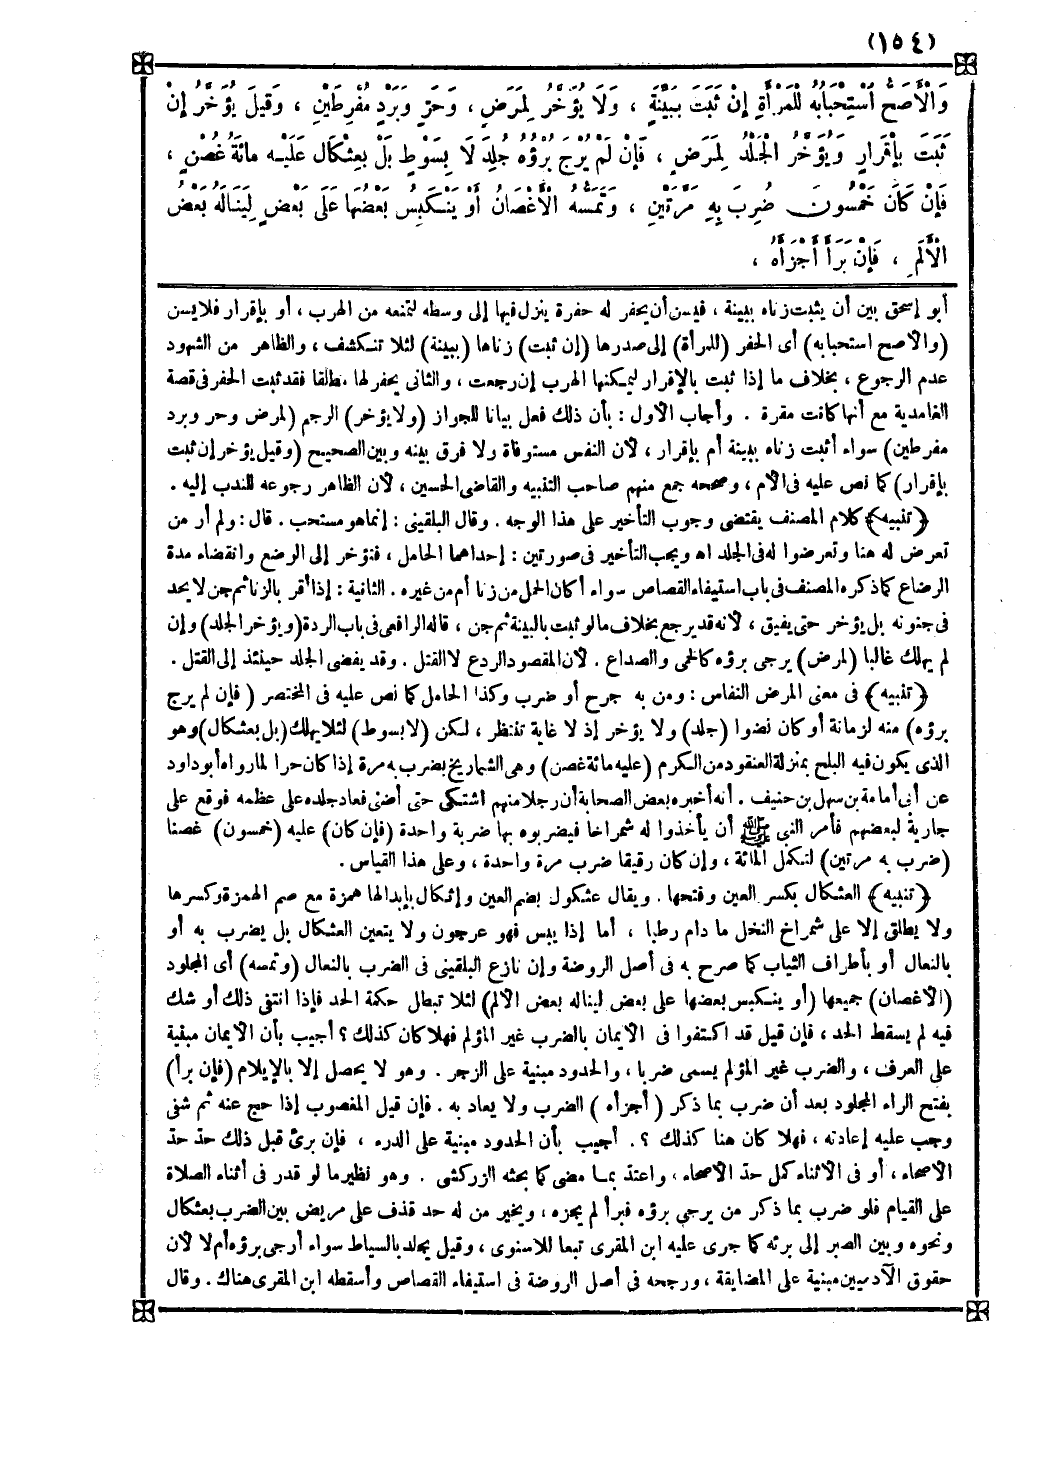 (١٥٤)
وَالْأَصَحُّ اسْتِحْبَابُهُ لِلْمَرْأَةِ إِنْ ثَبَتَ بِبَيِّنَةٍ ، وَلَا يُؤَخَّرُ لِمَرَضٍ ، وَحَرٍّ وَبَرْدٍ مُفْرِطَيْنِ ، وَقِيلَ يُؤَخَّرُ إِنْ
ثَبَتَ بِإِقْرَارٍ وَيُؤَخَّرُ الْجَلْدُ لِمَرَضٍ ، فَإِنْ لَمْ يُرْجَ بُرْؤُهُ جُلِدَ لَا بِسَوْطٍ بَلْ بِعِثْكَالٍ عَلَيْهِ مِائَةُ غُصْنٍ ،
فَإِنْ كَانَ خَمْسُونَ ضُرِبَ بِهِ مَرَّتَيْنِ ، وَتَمَسُّهُ الْأَغْصَانُ أَوْ يَنْكَبِسُ بَعْضُهَا عَلَى بَعْضٍ لِيَنَالَهُ بَعْضُ
الْأَلَمِ ، فَإِنْ بَرَأَ أَجْزَأَهُ ،
أبو إسحق بين أن يثبت زناه ببينة ، فيسن أن يحفر له حفرة ينزل فيها إلى وسطه لتمنعه من الهرب ، أو بإقرار فلا يسن
(والأصح استحبابه) أى الحفر (للمرأة) إلى صدرها (إن ثبت) زناها (ببينة) لئلا تنكشف ، والظاهر من الشهود
عدم الرجوع ، بخلاف ما إذا ثبت بالإقرار ليمكنها الهرب إن رجعت ، والثانى يحفر لها مطلقا فقد ثبت الحفر فى قصة
الغامدية مع أنها كانت مقرة . وأجاب الأول : بأن ذلك فعل بيانا للجواز (ولا يؤخر) الرجم (لمرض وحر وبرد
مفرطين) سواء أثبت زناه ببينة أم بإقرار ، لأن النفس مستوفاة ولا فرق بينه وبين الصحيح (وقيل يؤخر إن ثبت
بإقرار) كما نص عليه فى الأم ، وصححه جمع منهم صاحب التنبيه والقاضى الحسين ، لأن الظاهر رجوعه للندب إليه .
﴿ تنبيه ﴾ كلام المصنف يقتضى وجوب التأخير على هذا الوجه . وقال البلقينى : إنما هو مستحب . قال : ولم أر من
تعرض له هنا وتعرضوا له فى الجلد اه ويجب التأخير فى صورتين : إحداهما الحامل ، فتؤخر إلى الوضع وانقضاء مدة
الرضاع كما ذكره المصنف فى باب استيفاء القصاص سواء أكان الحمل من زنا أم من غيره . الثانية : إذا أقر بالزنا ثم جن لا يحد
فى جنونه بل يؤخر حتى يفيق ، لأنه قد يرجع بخلاف ما لو ثبت بالبينة ثم جن ، قاله الرافعى فى باب الردة (ويؤخر الجلد) وإن
لم يهلك غالبا (لمرض) يرجى برؤه كالحمى والصداع . لأن المقصود الردع لا القتل . وقد يفضى الجلد حينئذ إلى القتل .
﴿ تنبيه ﴾ فى معنى المرض النفاس : ومن به جرح أو ضرب وكذا الحامل كما نص عليه فى المختصر ( فإن لم يرج
برؤه) منه لزمانة أو كان نضوا (جلد) ولا يؤخر إذ لا غاية تنتظر ، لكن (لا بسوط) لئلا يهلك (بل بعثكال) وهو
الذى يكون فيه البلح بمنزلة العنقود من الكرم (عليه مائة غصن) وهى الشماريخ يضرب به مرة إذا كان حرا لما رواه أبو داود
عن أبى أمامة بن سهل بن حنيف . أنه أخبره بعض الصحابة أن رجلا منهم اشتكى حتى أضنى فعاد جلده على عظمه فوقع على
جارية لبعضهم فأمر النبى ﷺ أن يأخذوا له شمراخا فيضربوه بها ضربة واحدة (فإن كان) عليه (خمسون) غصنا
(ضرب به مرتين) لتكمل المائة ، وإن كان رقيقا ضرب مرة واحدة ، وعلى هذا القياس .
﴿ تنبيه ﴾ العثكال بكسر العين وفتحها . ويقال عثكول بضم العين وإثكال بإبدالها همزة مع ضم الهمزة وكسرها
ولا يطلق إلا على شمراخ النخل ما دام رطبا ، أما إذا يبس فهو عرجون ولا يتعين العثكال بل يضرب به أو
بالنعال أو بأطراف الثياب كما صرح به فى أصل الروضة وإن نازع البلقينى فى الضرب بالنعال (وتمسه) أى المجلود
(الأغصان) جميعها (أو ينكبس بعضها على بعض ليناله بعض الألم) لئلا تبطل حكمة الحد فإذا انتفى ذلك أو شك
فيه لم يسقط الحد ، فإن قيل قد اكتفوا فى الأيمان بالضرب غير المؤلم فهلا كان كذلك ؟ أجيب بأن الأيمان مبنية
على العرف ، والضرب غير المؤلم يسمى ضربا ، والحدود مبنية على الزجر . وهو لا يحصل إلا بالإيلام (فإن برأ)
بفتح الراء المجلود بعد أن ضرب بما ذكر ( أجزأه ) الضرب ولا يعاد به . فإن قيل المغصوب إذا حج عنه ثم شفى
وجب عليه إعادته ، فهلا كان هنا كذلك ؟ . أجيب بأن الحدود مبنية على الدرء ، فإن برئ قبل ذلك حد حد
الأصحاء ، أو فى الأثناء كمل حد الأصحاء ، واعتد بما مضى كما بحثه الزركشى . وهو نظير ما لو قدر فى أثناء الصلاة
على القيام فلو ضرب بما ذكر من يرجى برؤه فبرأ لم يجزه ، ويخير من له حد قذف على مريض بين الضرب بعثكال
ونحوه وبين الصبر إلى برئه كما جرى عليه ابن المقرى تبعا للأسنوى ، وقيل يجلد بالسياط سواء أرجى برؤه أم لا لأن
حقوق الآدميين مبنية على المضايقة ، ورجحه فى أصل الروضة فى استيفاء القصاص وأسقطه ابن المقرى هناك . وقال